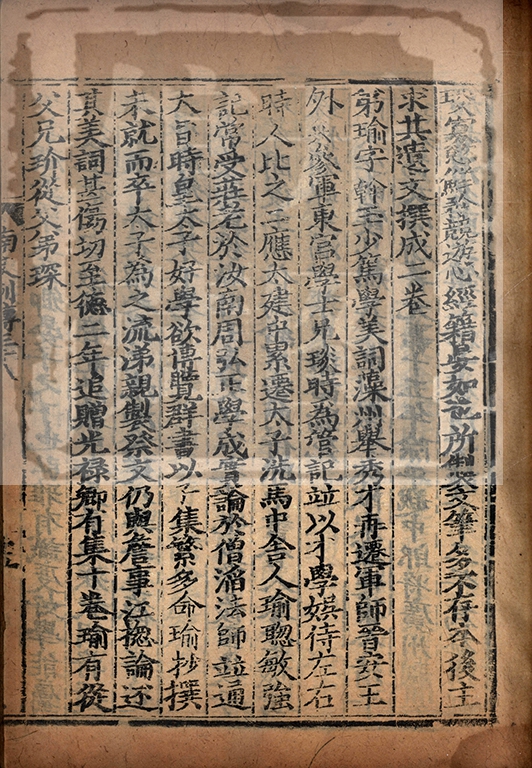 琰寡慾鮮矜競遊心經籍晏如也所製文筆多不存本後主
求其遺文撰成二卷
弟瑜字幹玉少篤學美詞藻州舉秀才再遷軍師晉安王
外兵參軍東宮學士兄琰時為管記並以才學娛待左右
時人比之二應太建中累遷太子洗馬中舍人瑜聰敏強
記常受莊老於汝南周弘正學成實論於僧滔法師並通
大旨時皇太子好學欲博覽群書以子集繁多命瑜抄撰
未就而卒太子為之流涕親製祭文仍與詹事江揔論述
其美詞甚傷切至德二年追贈光禄卿有集十卷瑜有從
父兄玠從父弟琛
南史列傳三八